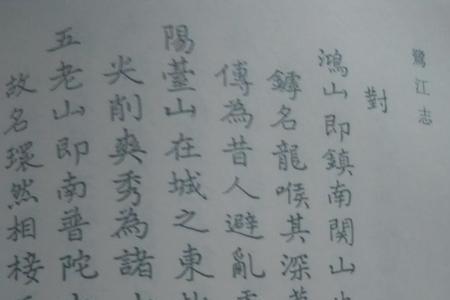 鷺江志
對
鴻山即鎮南関山
鏬名龍喉其深
傳為昔人避亂
陽臺山在城之東
尖削爽秀為諸
五老山即南普陀
故名環然相接